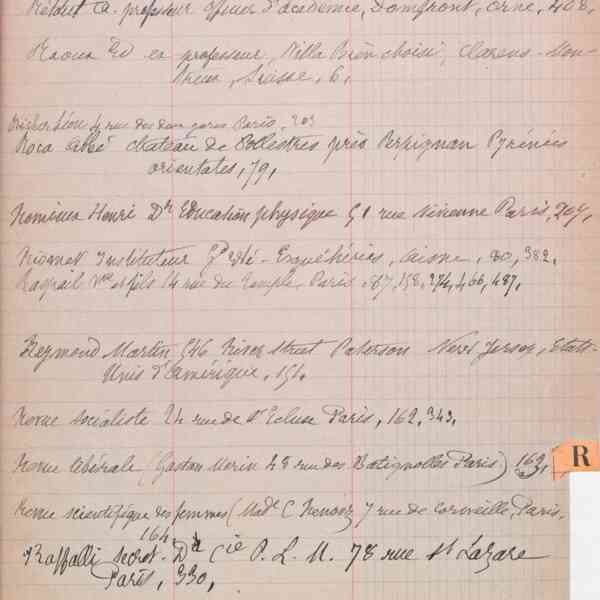 A. professeur officier d'académie, Domfront, Orne, 408,
Raoux Ed ex professeur, Villa Bien choisi, Clarens-Mon-
treux, Suisse, 6,
Richert Léon 4 rue des deux gares Paris, 303
Roca Abbé chateau de Collestres près Perpignan Pyrénées
orientales, 79,
Henri Dr Education physique 51 rue Vivienne Paris, 207,
Instituteur Aisne, 80, 382,
Raspail Vve et fils 14 rue du Temple, Paris, 87, 158, 274, 466, 487,
Reymond Martin 546 River Street Paterson New Jersey, Etats-
Unis d'Amérique, 151,
Revue socialiste 24 rue de Paris, 162, 343,
Revue libérale (Gaston Morin 48 rue des Batignolles Paris) 163,
R
Revue scientifique des femmes (Made C. Renooz 7 rue de Paris,
164,
Raffalli secret. Dt Cie P. L. M. 78 rue St Lazare
Paris, 330,